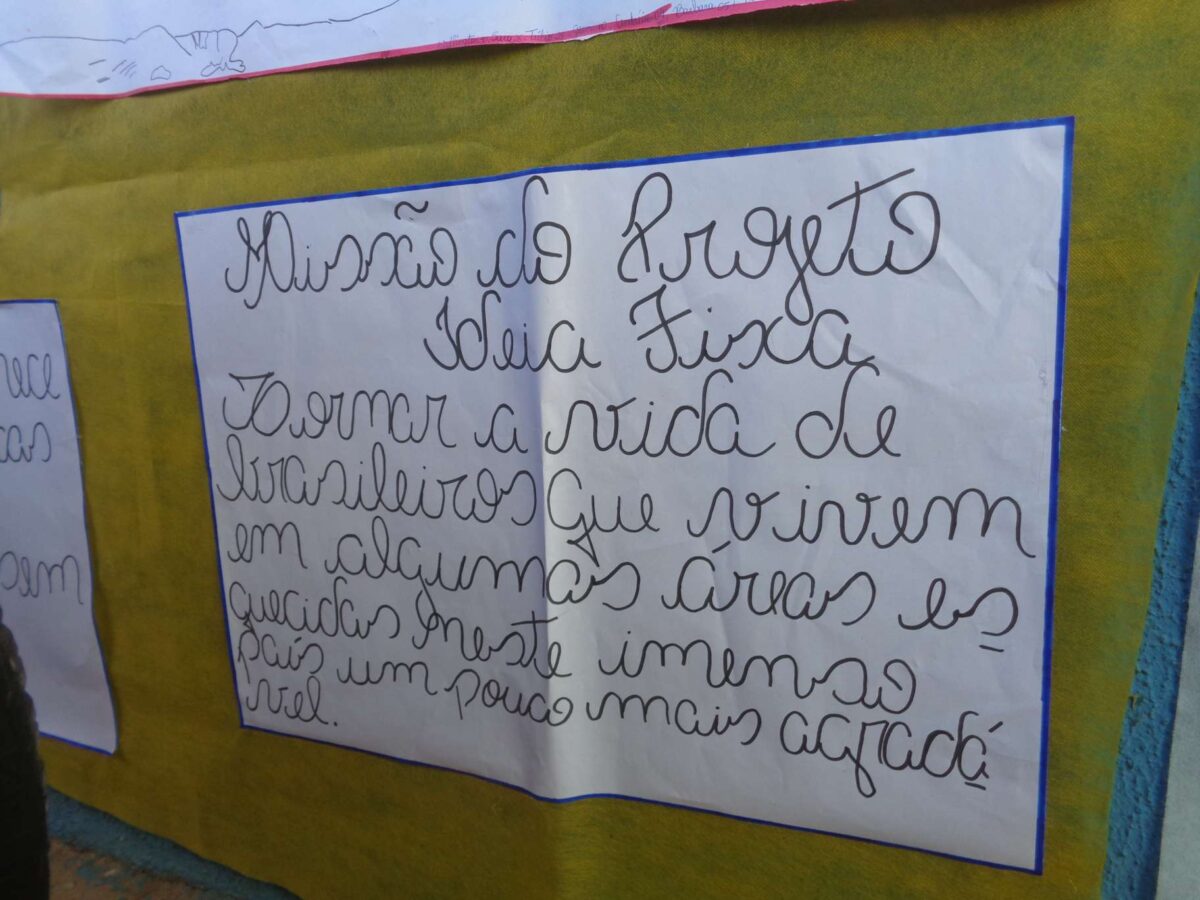 Missão do Projeto
Ideia Fixa
Tornar a vida de
brasileiros que vivem
em algumas áreas es
quecidas neste imenso
país um pouco mais agradá
vel.